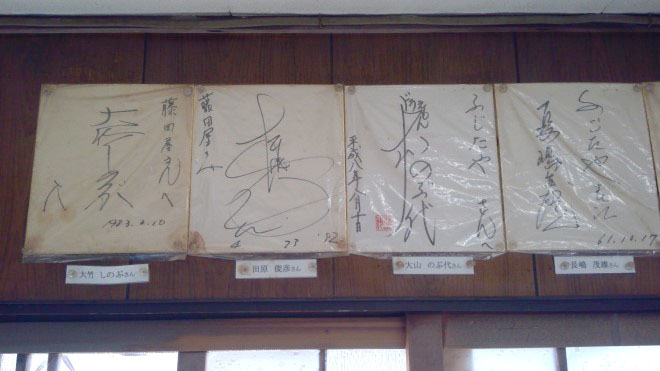 藤田屋さんへ
大竹しのぶ
1983.2.10
大竹 しのぶさん
藤田屋さんへ
'82
田原 俊彦さん
ふじたや さんへ
のぶ代
平成八年八月十日
大山 のぶ代さん
ふじたや さんへ
長嶋茂雄
61.10.17
長嶋 茂雄さん